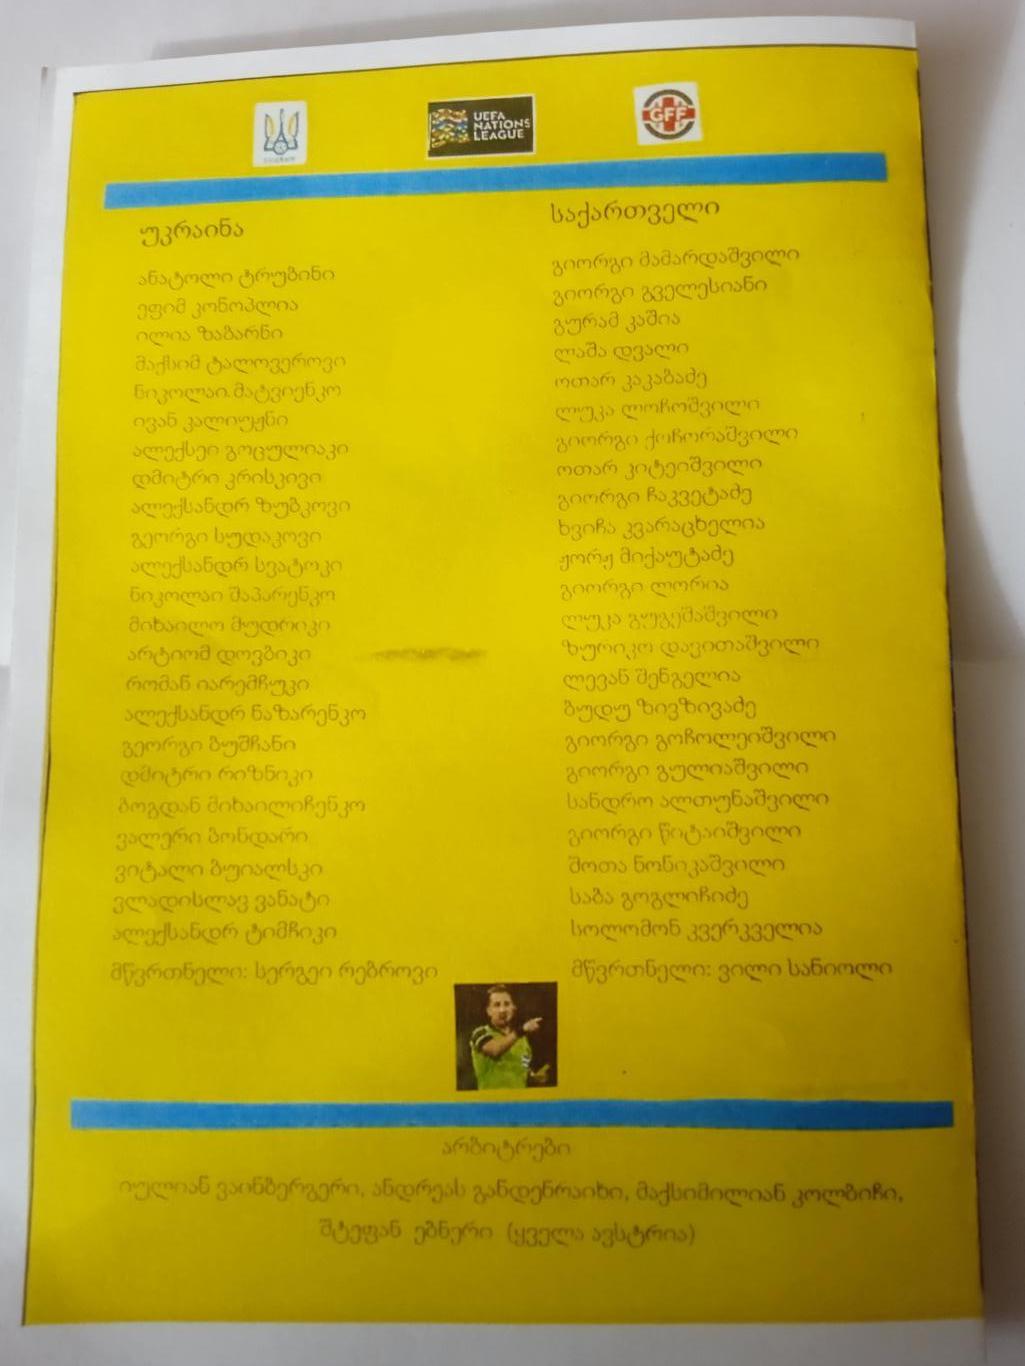 UEFA
NATIONS
LEAGUE
GFF
უკრაინა
ანატოლი ტრუბინი
ეფიმ კონოპლია
ილია ზაბარნი
მაქსიმ ტალოვეროვი
ნიკოლაი მატვიენკო
ივან კალიუჟნი
ალექსეი გოცულიაკი
დმიტრი კრისკივი
ალექსანდრ ზუბკოვი
გეორგი სუდაკოვი
ალექსანდრ სვატოკი
ნიკოლაი შაპარენკო
მიხაილო მუდრიკი
არტიომ დოვბიკი
რომან იარემჩუკი
ალექსანდრ ნაზარენკო
გეორგი ბუშჩანი
დმიტრი რიზნიკი
ბოგდან მიხაილიჩენკო
ვალერი ბონდარი
ვიტალი ბუიალსკი
ვლადისლავ ვანატი
ალექსანდრ ტიმჩიკი
მწვრთნელი: სერგეი რებროვი
საქართველი
გიორგი მამარდაშვილი
გიორგი გველესიანი
გურამ კაშია
ლაშა დვალი
ოთარ კაკაბაძე
ლუკა ლოჩოშვილი
გიორგი ქოჩორაშვილი
ოთარ კიტეიშვილი
გიორგი ჩაკვეტაძე
ხვიჩა კვარაცხელია
ჟორჟ მიქაუტაძე
გიორგი ლორია
ლუკა გუგეშაშვილი
ზურიკო დავითაშვილი
ლევან შენგელია
ბუდუ ზივზივაძე
გიორგი გოჩოლეიშვილი
გიორგი გულიაშვილი
სანდრო ალთუნაშვილი
გიორგი წიტაიშვილი
შოთა ნონიკაშვილი
საბა გოგლიჩიძე
სოლომონ კვერკველია
მწვრთნელი: ვილი სანიოლი
არბიტრები
იულიან ვაინბერგერი, ანდრეას განდენრაიხი, მაქსიმილიან კოლბიჩი,
შტეფან ებნერი (ყველა ავსტრია)